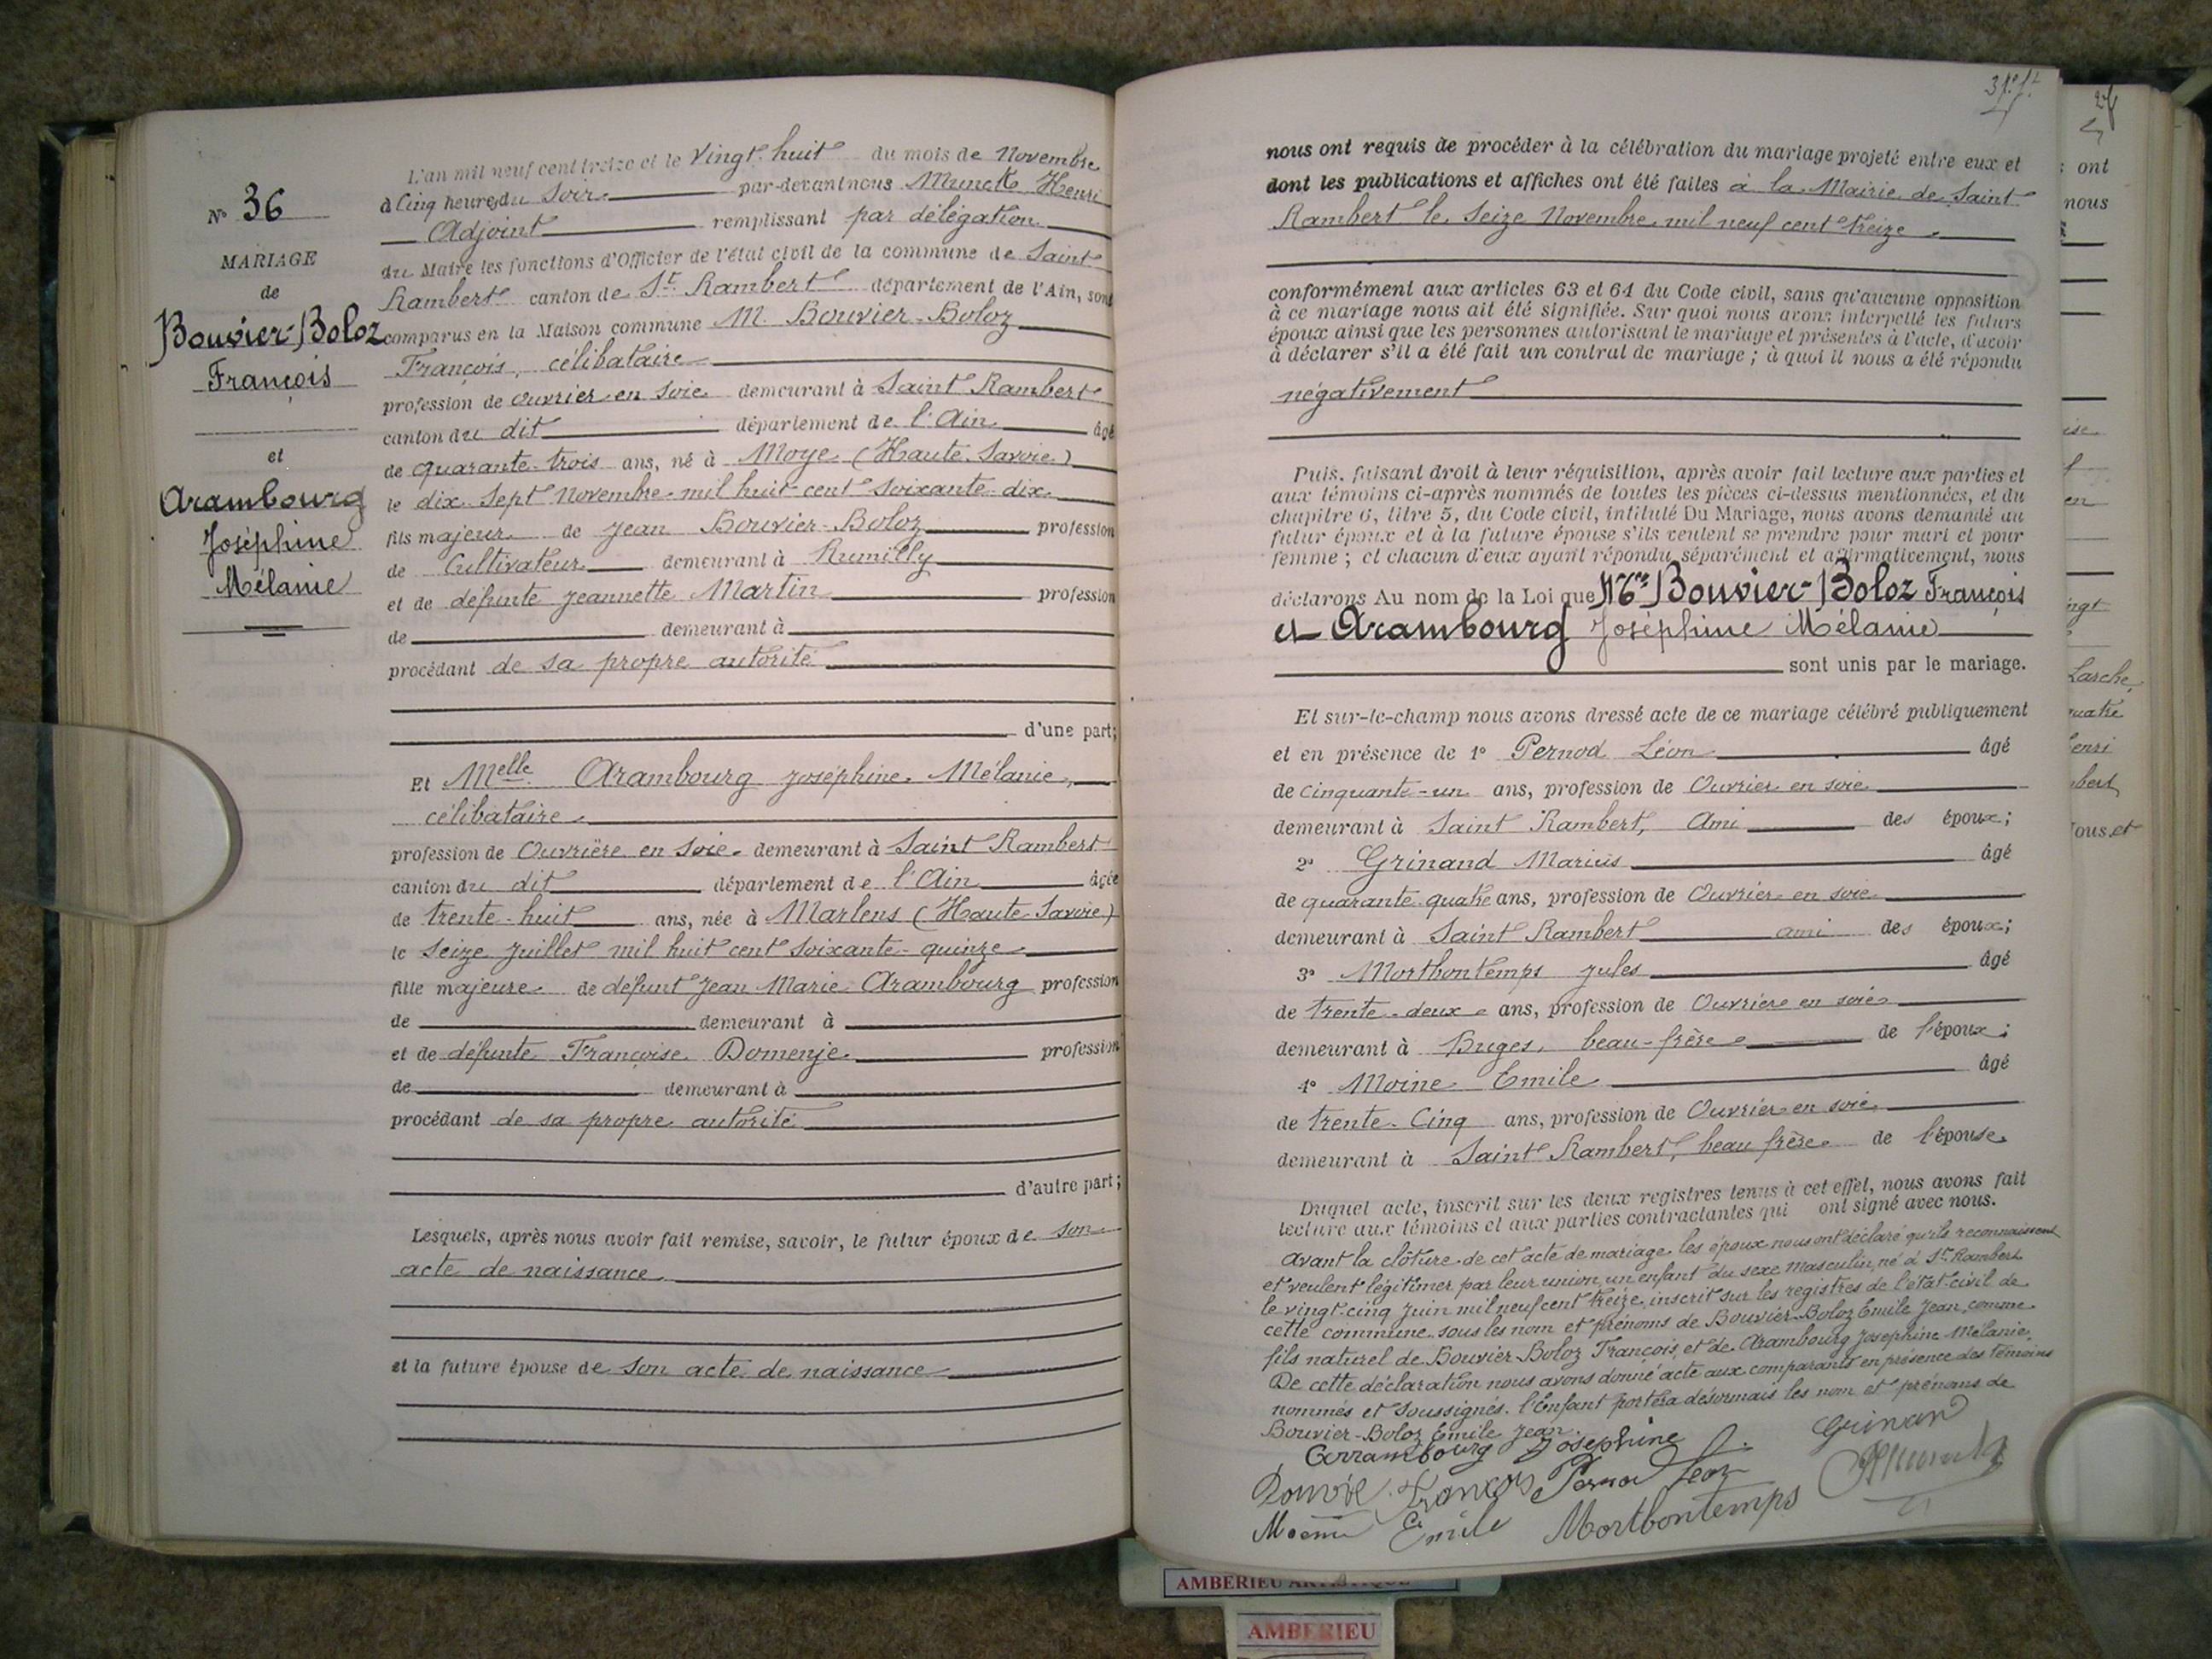 N° 36
MARIAGE
de
Bouvier-Boloz
François
et
Arambourg
Joséphine
Mélanie
L'an mil neuf cent treize et le vingt-huit du mois de Novembre
à Cinq heures du soir par-devant nous Munck Henri
Adjoint remplissant par délégation
du Maire les fonctions d'Officier de l'état civil de la commune de Saint
Rambert canton de St Rambert département de l'Ain, sont
comparus en la Maison commune M. Bouvier-Boloz
François, célibataire
profession de ouvrier en soie demeurant à Saint Rambert
canton du dit département de l'Ain âgé
de quarante-trois ans, né à Moye (Haute-Savoie)
le dix sept Novembre mil huit cent soixante dix
fils majeur de Jean Bouvier-Boloz profession
de Cultivateur demeurant à Rumilly
et de défunte Jeannette Martin profession
de demeurant à
procédant de sa propre autorité
d'une part;
Et Melle Arambourg Joséphine Mélanie,
célibataire
profession de Ouvrière en soie demeurant à Saint Rambert
canton du dit département de l'Ain âgée
de trente-huit ans, née à Marlens (Haute Savoie)
le seize Juillet mil huit cent soixante-quinze
fille majeure de défunt Jean Marie Arambourg profession
de demeurant à
et de défunte Françoise Domenje profession
de demeurant à
procédant de sa propre autorité
d'autre part;
Lesquels, après nous avoir fait remise, savoir, le futur époux de son
acte de naissance
et la future épouse de son acte de naissance
nous ont requis de procéder à la célébration du mariage projeté entre eux et
dont les publications et affiches ont été faites à la Mairie de Saint
Rambert le seize Novembre mil neuf cent treize
conformément aux articles 63 et 64 du Code civil, sans qu'aucune opposition
à ce mariage nous ait été signifiée. Sur quoi nous avons interpellé les futurs
époux ainsi que les personnes autorisant le mariage et présentes à l'acte, d'avoir
à déclarer s'il a été fait un contrat de mariage; à quoi il nous a été répondu
négativement
Puis, faisant droit à leur réquisition, après avoir fait lecture aux parties et
aux témoins ci-après nommés de toutes les pièces ci-dessus mentionnées, et du
chapitre 6, titre 5, du Code civil, intitulé Du Mariage, nous avons demandé au
futur époux et à la future épouse s'ils veulent se prendre pour mari et pour
femme; et chacun d'eux ayant répondu séparément et affirmativement, nous
déclarons Au nom de la Loi que Bouvier-Boloz François
et Arambourg Joséphine Mélanie
sont unis par le mariage.
Et sur-le-champ nous avons dressé acte de ce mariage célébré publiquement
et en présence de 1° Pernod Léon âgé
de cinquante-un ans, profession de Ouvrier en soie
demeurant à Saint Rambert, Ami des époux;
2° Grinand Marius âgé
de quarante-quatre ans, profession de Ouvrier en soie
demeurant à Saint Rambert ami des époux;
3° Mortbontemps Jules âgé
de trente-deux ans, profession de Ouvrier en soie
demeurant à Burges, beau-frère de l'époux;
4° Moine Emile âgé
de trente-Cinq ans, profession de Ouvrier en soie
demeurant à Saint Rambert, beau frère de l'épouse
Duquel acte, inscrit sur les deux registres tenus à cet effet, nous avons fait
lecture aux témoins et aux parties contractantes qui ont signé avec nous.
Avant la clôture de cet acte de mariage les époux nous ont déclaré qu'ils reconnaissent
et veulent légitimer par leur union, un enfant du sexe masculin, né à St Rambert
le vingt-cinq Juin mil neuf cent treize, inscrit sur les registres de l'état-civil de
cette commune sous les nom et prénoms de Bouvier-Boloz Emile Jean, comme
fils naturel de Bouvier-Boloz François, et de Arambourg Joséphine Mélanie.
De cette déclaration nous avons donné acte aux comparants en présence des témoins
nommés et soussignés. l'Enfant portera désormais les nom et prénoms de
Bouvier-Boloz Emile Jean.
Arrambourg Josephine
Grinand
Bouvié François
Pernod Leon
Moine Emile
Mortbontemps
ont
nous
en
Larche,
quatre
Henri
AMBERIEU ARTISTIQUE
AMBERIEU